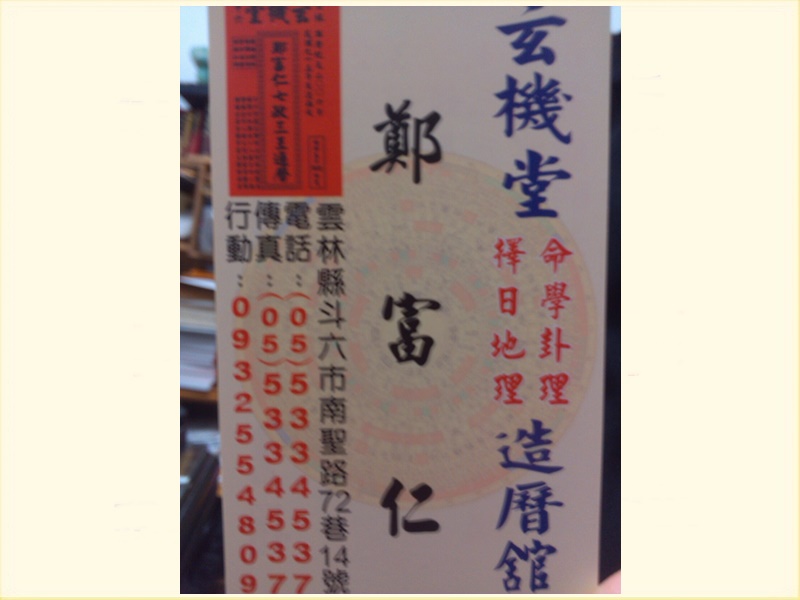 玄機堂
命學卦理
擇日地理
造曆館
鄭富仁
雲林縣斗六市南聖路72巷14號
電話：(05)5334537
傳真：(05)5334537
行動：0932554809